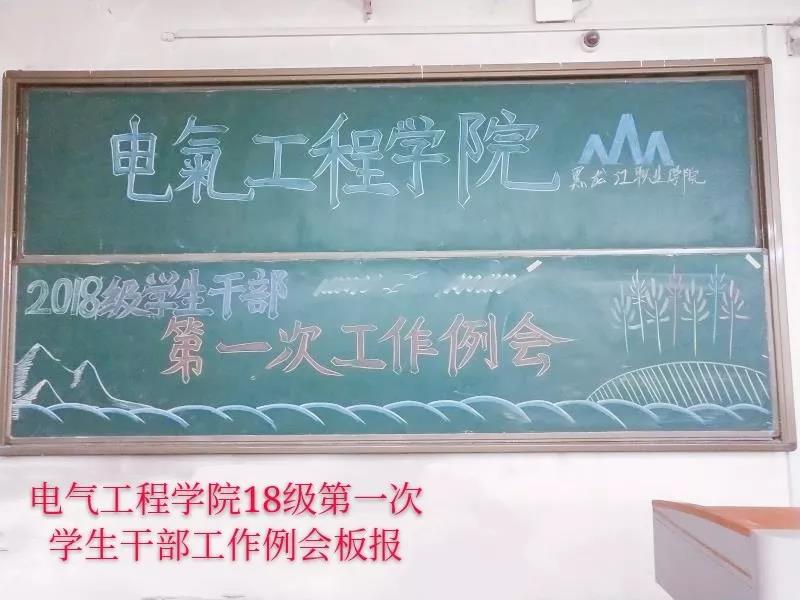 电氣工程学院
黑龙江职业学院
2018级学生干部
第一次工作例会
电气工程学院18级第一次
学生干部工作例会板报